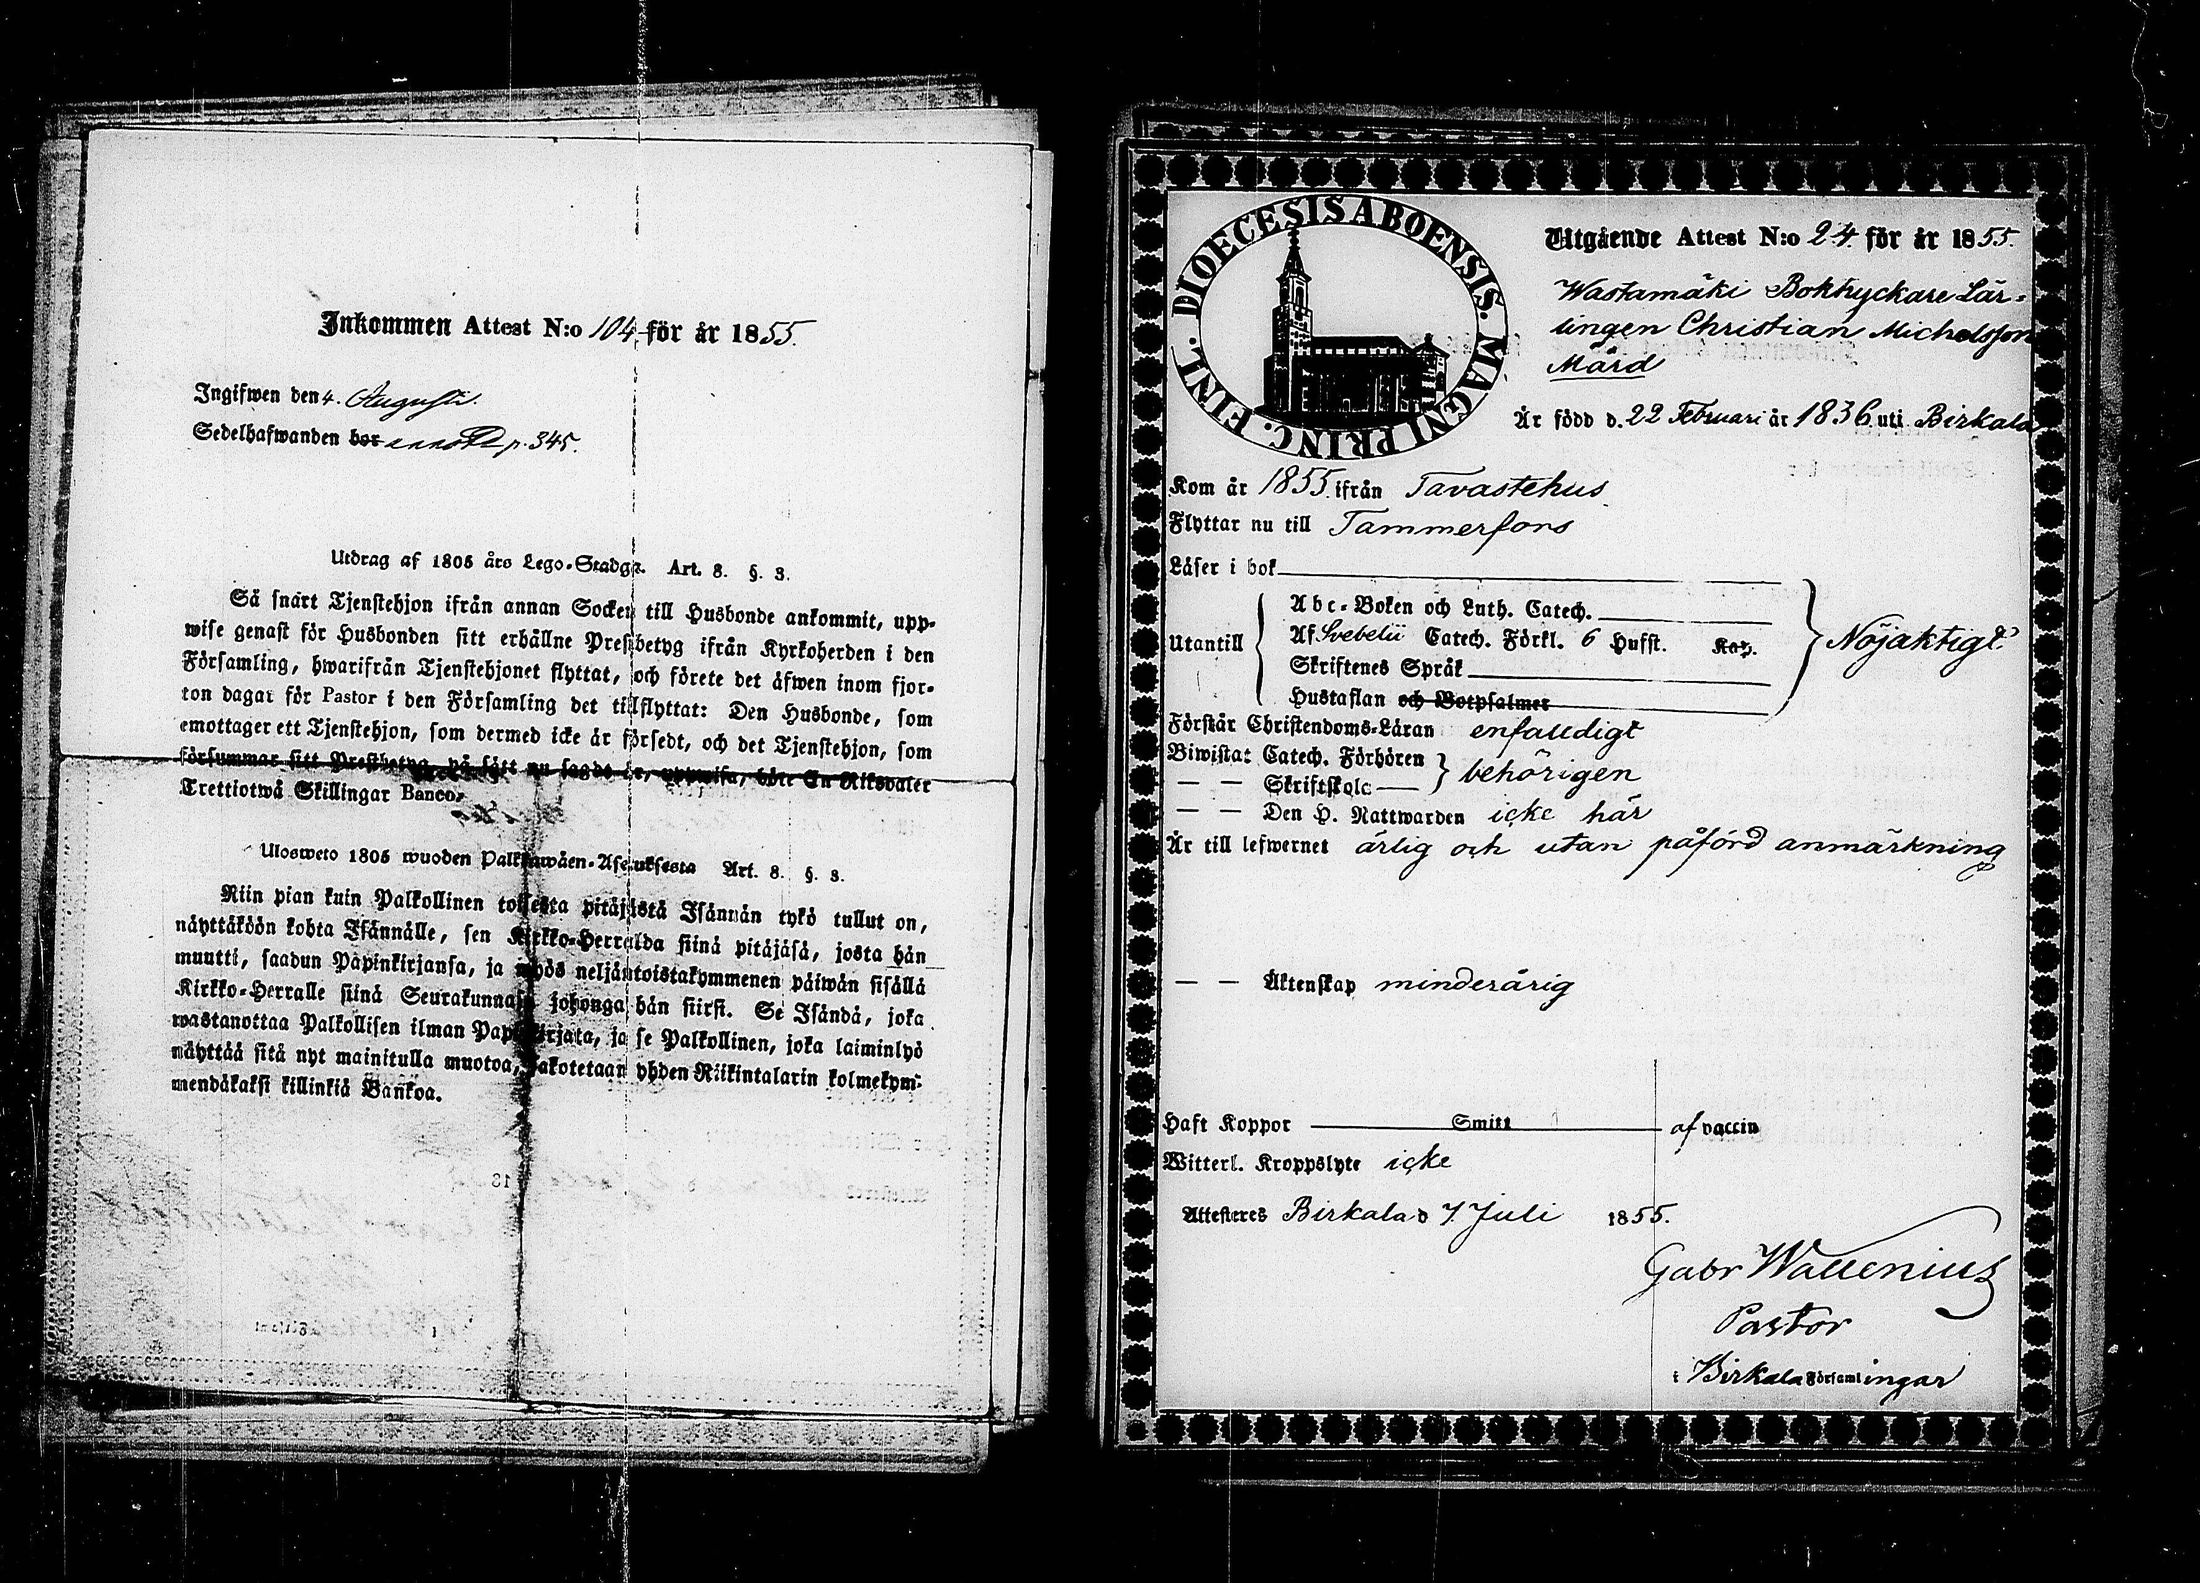 Inkommen Attest N:o 104 för år 1855.
Ingifwen den 4. Augusti.
Sedelhafwanden bor p. 345.
Utdrag af 1805 års Lego-Stadga. Art. 8. §. 3.
Så snart Tjenstehjon ifrån annan Socken till Husbonde ankommit, upp-
wise genast för Husbonden sitt erhållne Prestbetyg ifrån Kyrkoherden i den
Församling, hwarifrån Tjenstehjonet flyttat, och förete det äfwen inom fjor-
ton dagar för Pastor i den Församling det tillflyttat: Den Husbonde, som
emottager ett Tjenstehjon, som dermed icke är försedt, och det Tjenstehjon, som
försummar sitt Prestbetyg, på sätt nu sagdt är, uppwisa, böte En Riksdaler
Trettiotwå Skillingar Banco.
Ulosweto 1805 wuoden Palkkawäen-Asetuksesta Art. 8. §. 3.
Niin pian kuin Palkollinen toisesta pitäjästä Isännän tykö tullut on,
näyttäköön kohta Isännälle, sen Kirkko-Herralda siinä pitäjäsä, josta hän
muutti, saadun Papinkirjansa, ja myös neljäntoistakymmenen päiwän sisällä
Kirkko-Herralle siinä Seurakunnasa johonga hän siirsi. Se Isändä, joka
wastanottaa Palkollisen ilman Papinkirjata, ja se Palkollinen, joka laiminlyö
näyttää sitä nyt mainitulla muotoa, sakotetaan yhden Riikintalarin kolmekym-
mendäkaksi killinkiä Bankoa.
DIOECESIS ABOENSIS. MAGNI PRINC. FINL.
Utgående Attest N:o 24. för år 1855.
Wastamäki Boktryckare Lär-
lingen Christian Michelsson
Mård
Är född d. 22 Februari år 1836 uti Birkala
Kom år 1855. ifrån Tavastehus
Flyttar nu till Tammerfors
Läser i bok
Utantill
Abc-Boken och Luth. Catech.
Af Svebelii Catech. Förkl. 6 Hufst. Kap.
Skriftenes Språk
Hustaflan och Botpsalmer
Nöjaktigt
Förstår Christendoms-Läran enfaldigt
Biwistat Catech. Förhören
— — Skriftskola
behörigen
— — Den H. Nattwarden icke här
Är till lefwernet ärlig och utan påförd anmärkning
— — Äktenskap minderårig
Haft Koppor Smitt af vaccin
Witterl. Kroppslyte icke
Attesteres Birkala d 7. Juli 1855.
Gabr Wallenius
Pastor
i Birkala Församlingar